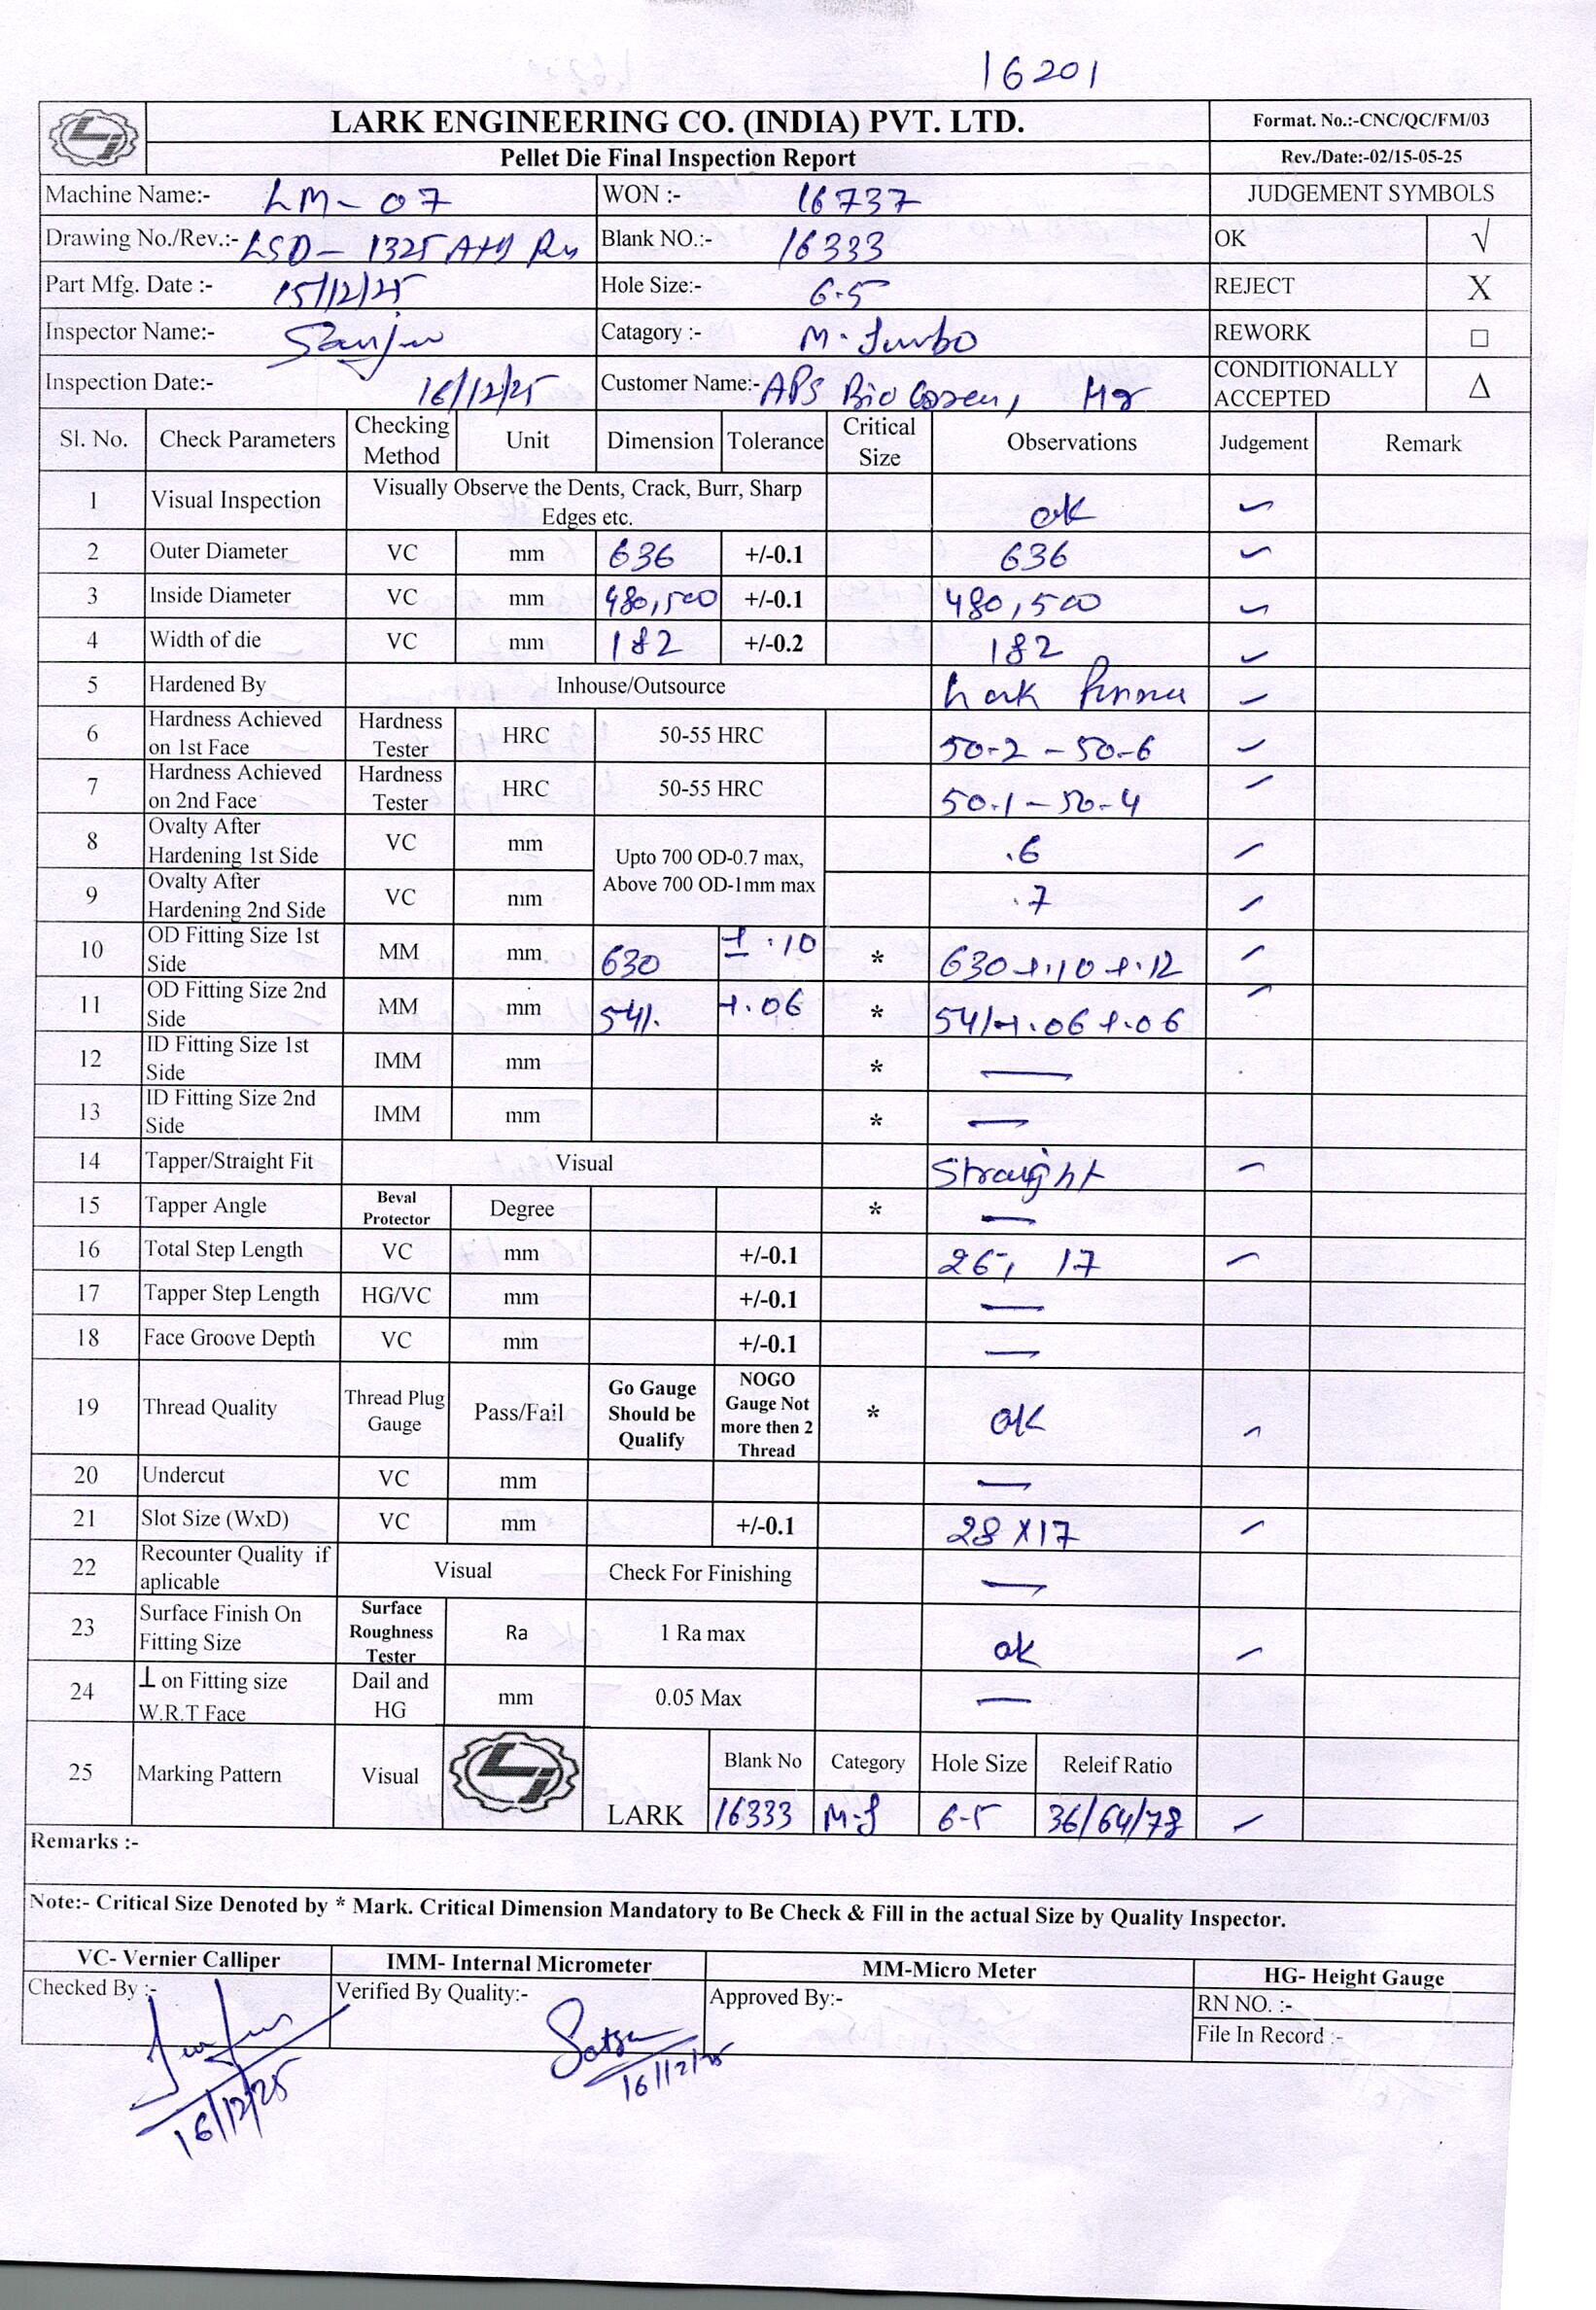 16201
LARK ENGINEERING CO. (INDIA) PVT. LTD. Format. No.:-CNC/QC/FM/03
Pellet Die Final Inspection Report Rev./Date:-02/15-05-25
Machine Name:- LM-07 WON :- 16737 JUDGEMENT SYMBOLS
Drawing No./Rev.:- LSD-1325 Blank NO.:- 16333 OK √
Part Mfg. Date :- 15/12/25 Hole Size:- 6.5 REJECT X
Inspector Name:- Catagory :- M. Turbo REWORK □
Inspection Date:- 16/12/25 Customer Name:- APS Bio CONDITIONALLY ACCEPTED Δ
Sl. No. Check Parameters Checking Method Unit Dimension Tolerance Critical Size Observations Judgement Remark
1 Visual Inspection Visually Observe the Dents, Crack, Burr, Sharp Edges etc. ok ✓
2 Outer Diameter VC mm 636 +/-0.1 636 ✓
3 Inside Diameter VC mm 480,500 +/-0.1 480,500 ✓
4 Width of die VC mm 182 +/-0.2 182 ✓
5 Hardened By Inhouse/Outsource Lark ✓
6 Hardness Achieved on 1st Face Hardness Tester HRC 50-55 HRC 50.2 - 50.6 ✓
7 Hardness Achieved on 2nd Face Hardness Tester HRC 50-55 HRC 50.1 - 50.4 ✓
8 Ovalty After Hardening 1st Side VC mm Upto 700 OD-0.7 max, .6 ✓
9 Ovalty After Hardening 2nd Side VC mm Above 700 OD-1mm max .7 ✓
10 OD Fitting Size 1st Side MM mm 630 ± .10 * 630 +.10 +.12 ✓
11 OD Fitting Size 2nd Side MM mm 541. +.06 * 541 +.06 +.06 ✓
12 ID Fitting Size 1st Side IMM mm * —
13 ID Fitting Size 2nd Side IMM mm * —
14 Tapper/Straight Fit Visual Straight ✓
15 Tapper Angle Beval Protector Degree * —
16 Total Step Length VC mm +/-0.1 26, 17 ✓
17 Tapper Step Length HG/VC mm +/-0.1 —
18 Face Groove Depth VC mm +/-0.1 —
19 Thread Quality Thread Plug Gauge Pass/Fail Go Gauge Should be Qualify NOGO Gauge Not more then 2 Thread * OK ✓
20 Undercut VC mm —
21 Slot Size (WxD) VC mm +/-0.1 28 X 17 ✓
22 Recounter Quality if aplicable Visual Check For Finishing —
23 Surface Finish On Fitting Size Surface Roughness Tester Ra 1 Ra max ok ✓
24 ⊥ on Fitting size W.R.T Face Dail and HG mm 0.05 Max —
25 Marking Pattern Visual LARK Blank No Category Hole Size Releif Ratio
16333 6.5 36/64/78 ✓
Remarks :-
Note:- Critical Size Denoted by * Mark. Critical Dimension Mandatory to Be Check & Fill in the actual Size by Quality Inspector.
VC- Vernier Calliper IMM- Internal Micrometer MM-Micro Meter HG- Height Gauge
Checked By :- Verified By Quality:- Approved By:- RN NO. :-
File In Record :-
16/12/25 16/12/25